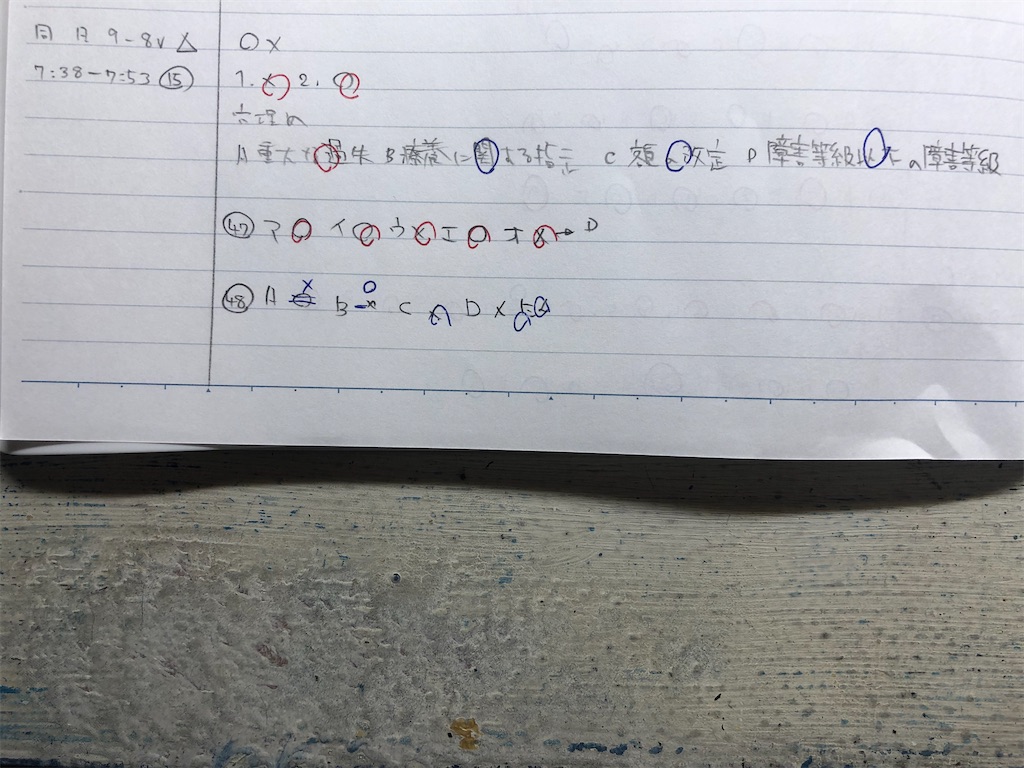 同 日 9-8v △ ○×
7:38-7:53 ⑮ 1. × 2. ○
正理の
A 重大な過失 B 療養に関する指示 C 額の改定 D 障害等級以下の障害等級
㊼ ア ○ イ ○ ウ × エ ○ オ × → D
㊽ A × B ○ C D ×